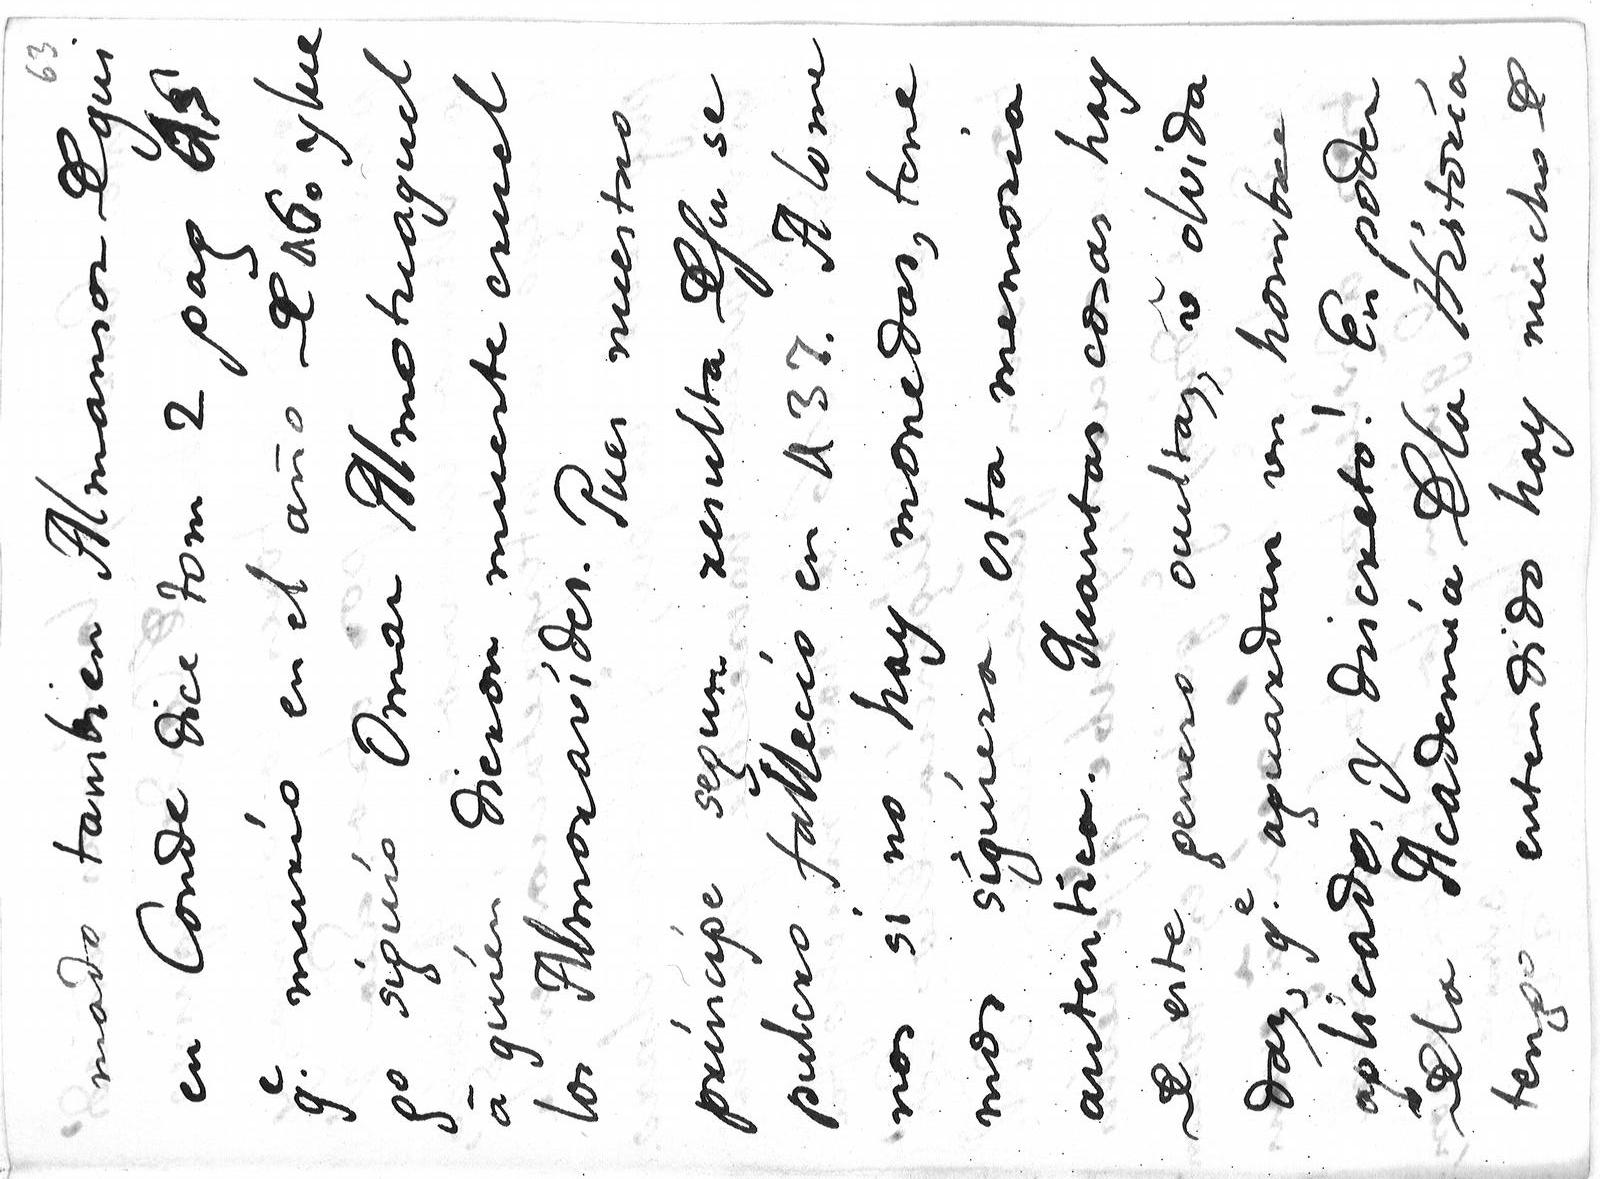 63
mado tambien Almansor De quí
en Conde dice tom 2 pag
q.e murió en el año De 116. y lue
go siguió Omar Almotuaquel
â quién dieron muerte cruel
los Almoravídes. Pues nuestro
príncipe segun resulta De su se
pulcro fallecio en 437. A lo me
nos si no hay monedas, tene
mos síquiera esta memoria
autentica. Quantas cosas hay
De este genero ocultas, ô olvida
das, q.e aguardan un hombre
aplicado, y discreto! En poder
De la Academía De la Hístoría
tengo entendido hay mucho De